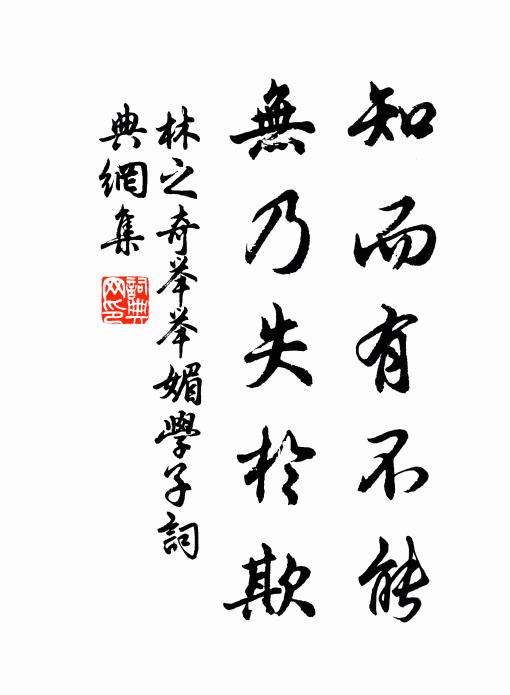 知而有不能
無乃失於欺
林之奇举举媚學子詞
典網集
詞典
网印